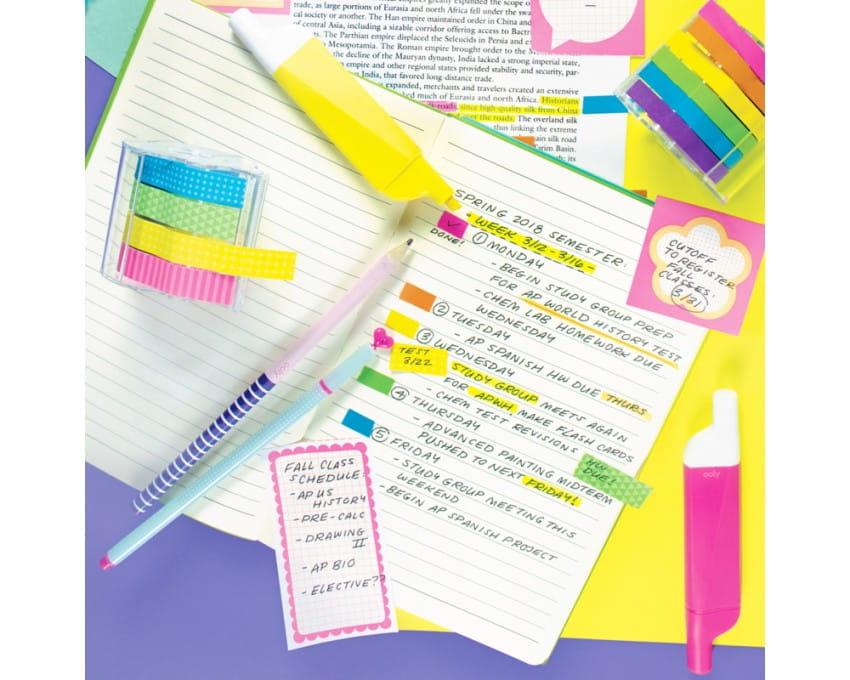 greatly expanded the scope o
trade, as large portions of Eurasia and north Africa fell under the sway
cal society or another. The Han empire maintained order in China and
of central Asia, including a sizable corridor offering access to Bactr
The Parthian empire displaced the Seleucids in Persia and ex
Mesopotamia. The Roman empire brought order to the
the decline of the Mauryan dynasty, India lacked a strong imperial state,
empire and other regional states provided stability and security, par-
India, that favored long-distance trade.
expanded, merchants and travelers created an extensive
ked much of Eurasia and north Africa. Historians
roads, since high-quality silk from China
over the roads. The overland silk
thus linking the extreme
ain silk road
Tarim Basin.
its
SPRING 2018 SEMESTER:
- WEEK 3/12 - 3/16 -
DONE!
① MONDAY
- BEGIN STUDY GROUP PREP
FOR AP WORLD HISTORY TEST
- CHEM LAB HOMEWORK DUE
WEDNESDAY
② TUESDAY
- AP SPANISH HW DUE THURS
③ WEDNESDAY
TEST
3/22
STUDY GROUP MEETS AGAIN
FOR APWH. MAKE FLASH CARDS
- CHEM TEST REVISIONS
④ THURSDAY
- ADVANCED PAINTING MIDTERM
PUSHED TO NEXT FRIDAY!
HW
DUE!
⑤ FRIDAY
- STUDY GROUP MEETING THIS
WEEKEND
- BEGIN AP SPANISH PROJECT
CUTOFF
TO REGISTER
FALL
CLASSES:
3/31
FALL CLASS
SCHEDULE:
- AP US
HISTORY
- PRE-CALC
- DRAWING
II
- AP BIO
- ELECTIVE??
ooly
ooly